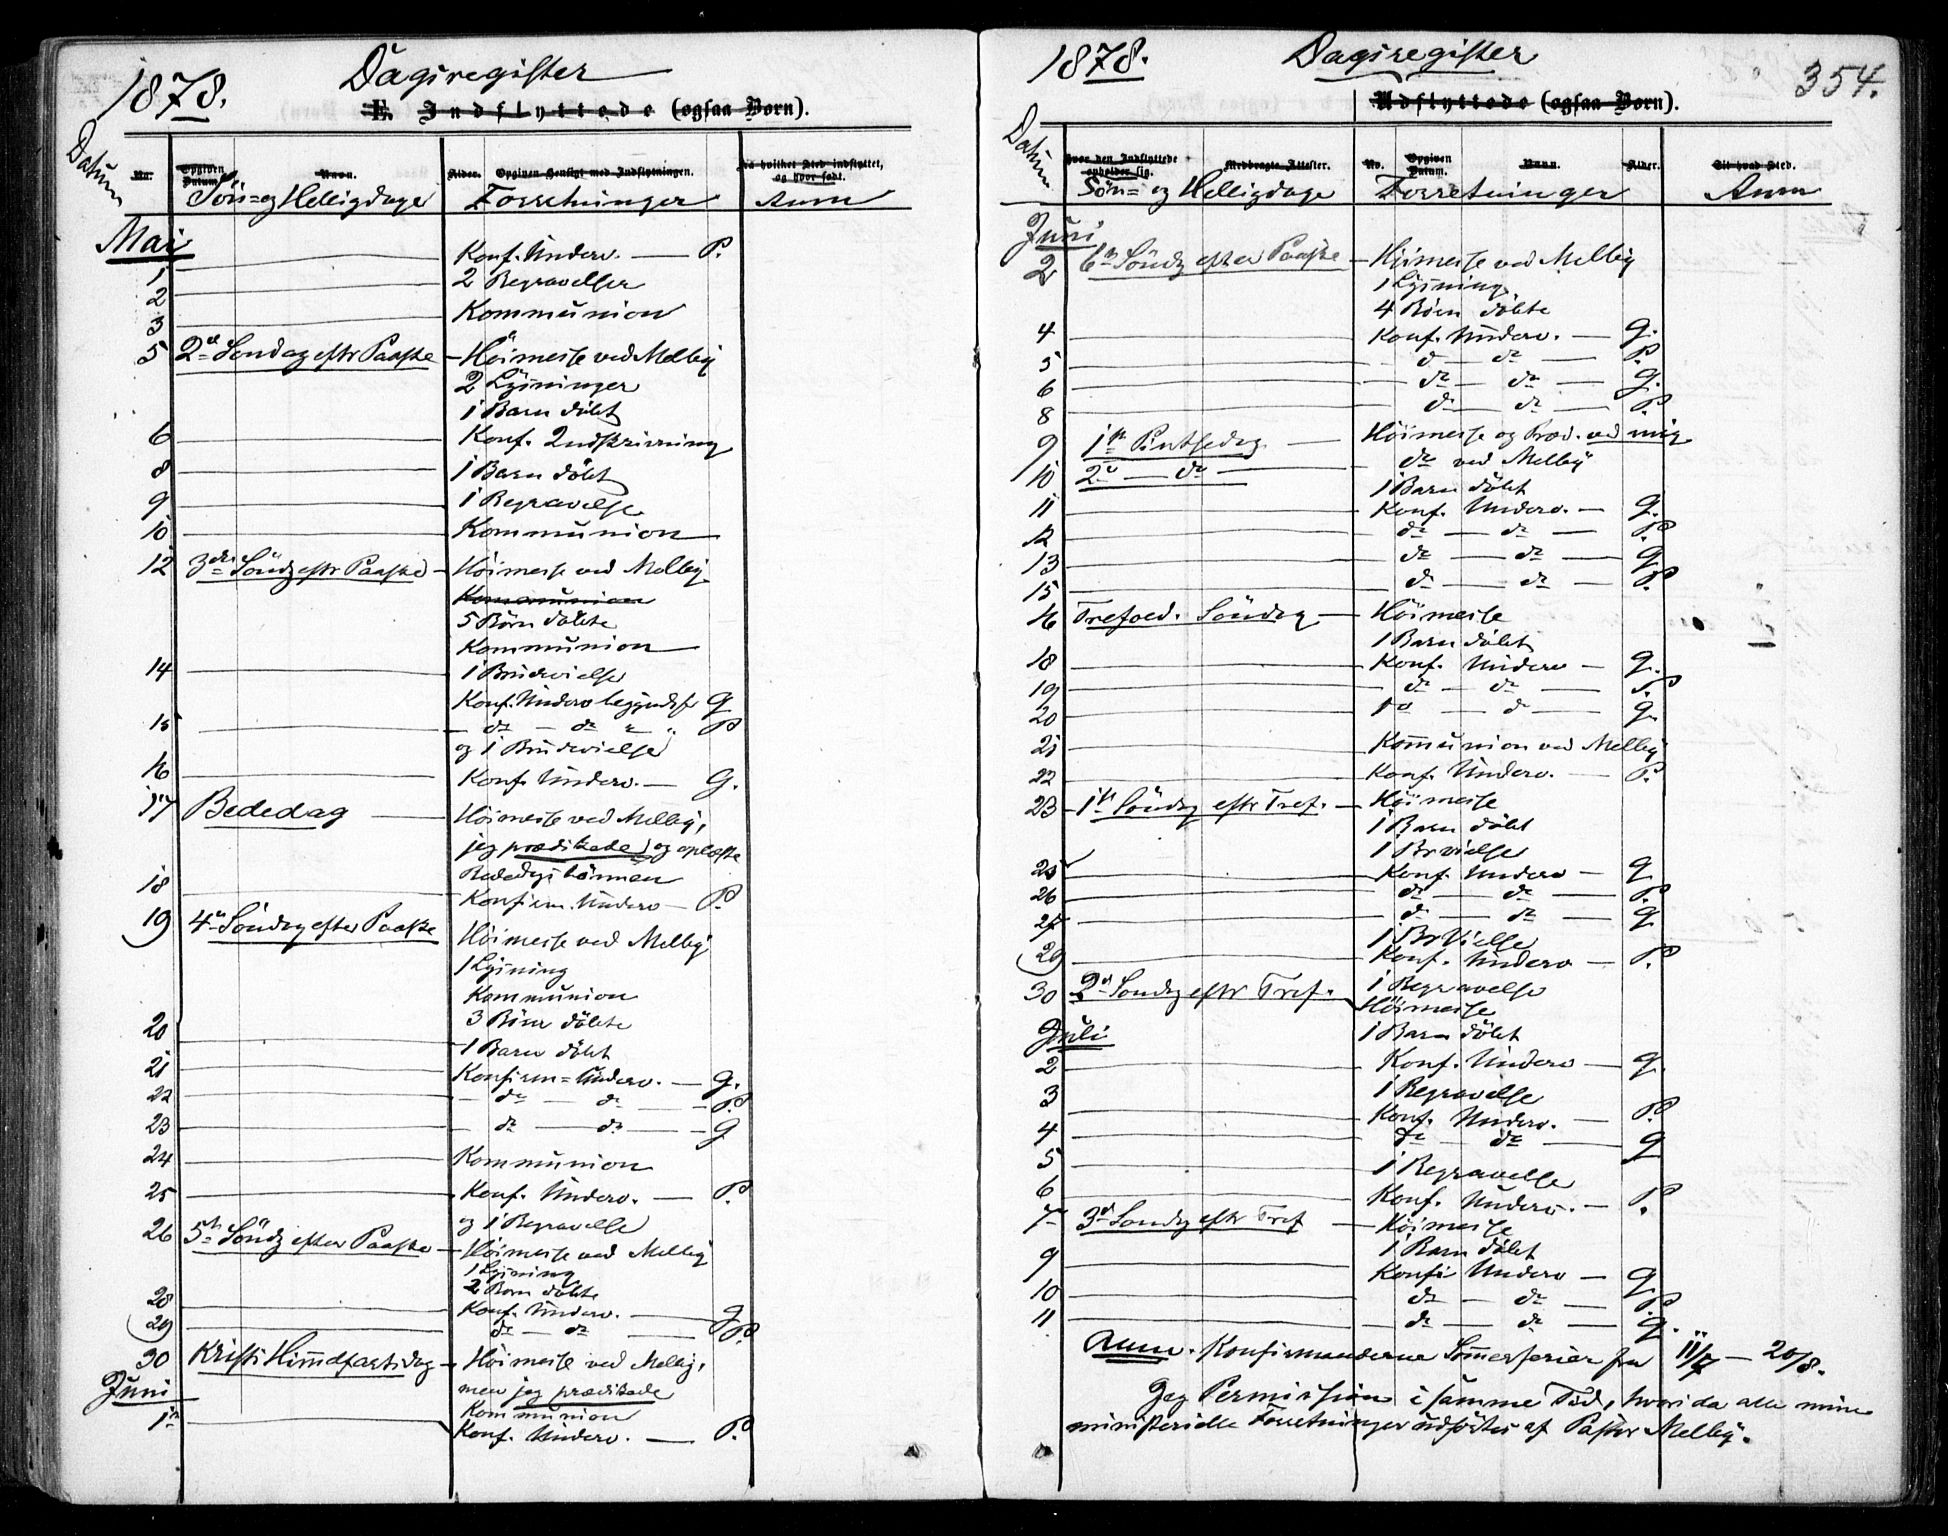 1878. Dagsregister
E. Indflyttede (ogsaa Børn).
Datum
No. Opgiven Datum. Navn. Alder. Opgiven Hensigt med Indflytningen. Fra hvilket Sted indflyttet, og hvor født.
Søn= og Helligdage Forretninger Anm
Mai
1 Konf. Underv. — P.
2 2 Begravelser
3 Kommunion
5 2den Søndag eftr Paaske — Höimesse ved Melby
2 Lysninger
1 Barn döbt
6 Konf. Indskrivning
8 1 Barn döbt
9 1 Begravelse
10 Kommunion
12 3die Söndg eftr Paaske — Höimesse ved Melby
Kommunion
5 Börn döbte
Kommunion
14 1 Brudevielse
Konf. Underv begyndte G
15 — do — do " " P
og 1 Brudevielse
16 Konf. Underv. — G.
17 Bededag — Höimesse ved Melby,
jeg prædikede og oplæste
Bededagsbönnen
18 Konfirm. Underv — P.
19 4de Söndag efter Paaske Höimesse ved Melby
1 Lysning
Kommunion
3 Börn döbte
20 1 Barn döbt
21 Konfirm= Underv. — G.
22 — do — do — P
23 — do — do — G
24 Kommunion
25 Konf. Underv. — P.
og 1 Begravelse
26 5te Söndg efter Paaske — Höimesse ved Melby
1 Lysning
2 Børn döbte
28 Konf. Underv. — G
29 do — do — P.
30 Kristi Himmelfartsdag — Höimesse ved Melby,
men jeg prædikede
Juni
Kommunion
1 Konf. Underv. — P.
1878. Dagsregister
354.
Udflyttede (ogsaa Børn).
Datum
Hvor den Indflyttede opholder sig. Medbragte Attester. No. Opgiven Datum. Navn. Alder. Til hvad Sted.
Søn= og Helligdage Forretninger Anm
Juni
2 6te Söndg efter Paaske — Höimesse ved Melby
1 Lysning
4 Börn döbte
4 Konf. Underv. — G.
5 do — do — P.
6 — do — do — G.
8 do — do — P
9 1ste Pintsedag — Höimesse og Præd. ved mig
10 2den — do — do ved Melby
1 Barn döbt
11 Konf. Underv. — G.
12 do — do — P
13 do — do — G
15 do — do — P
16 Trefold. Söndag — Höimesse
1 Barn döbt
18 Konf. Underv — G.
19 — do — do — P.
20 do — do — G
21 Kommunion ved Melby
22 Konf. Underv. — P.
23 1ste Söndag eftr Tref. — Höimesse
1 Barn döbt
1 Brvielse
25 Konf. Underv — G
26 do — do — P.
27 — do — do — G
1 BrVielse
29 Konf. Underv — P.
1 Begravelse
30 2den Söndg eftr Tref. Höimesse
1 Barn döbt
Juli
2 Konf. Underv — G
1 Begravelse
3 Konf. Underv. — P.
4 do — do — G
5 1 Begravelse
6 Konf. Underv. — P.
7 3die Söndg eftr Tref — Höimesse
1 Barn döbt
9 Konfi Underv — G
10 do — do — P
11 — do — do — G.
Anm. Konfirmanderne Sommerferier fra 11/7 — 20/8.
Jeg Permission i samme Tid, hvori da alle mine
ministerielle Forretninger udförtes af Pastor Melby.